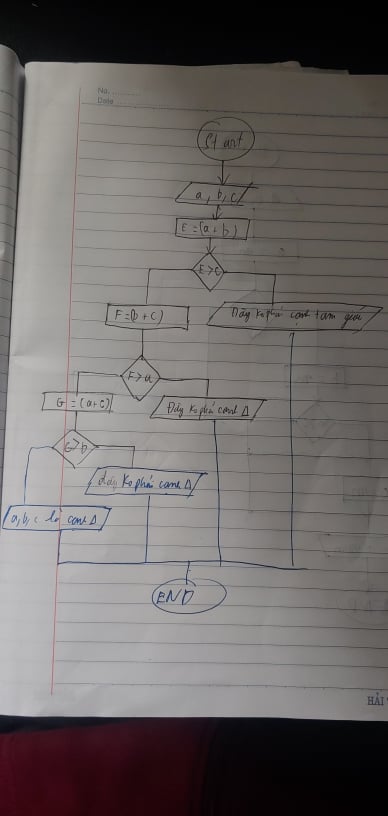 No.
Date
Start
a, b, c
E = (a + b)
E > C
F = (b + c)
Đây ko phải cạnh tam giác
F > a
G = (a + c)
Đây ko phải cạnh Δ
G > b
đây ko phải cạnh Δ
a, b, c là cạnh Δ
END
HẢI